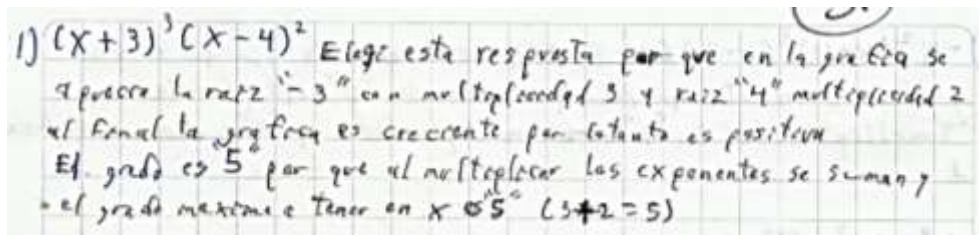 1) (x+3)³(x-4)² Elegi esta respuesta por que en la grafica se
aprecia la raiz "-3" con multiplicidad 3 y raiz "4" multiplicidad 2
al final la grafica es creciente por lo tanto es positiva
El grado es "5" por que al multiplicar los exponentes se suman y
el grado maximo a tener en x es "5" (3+2=5)